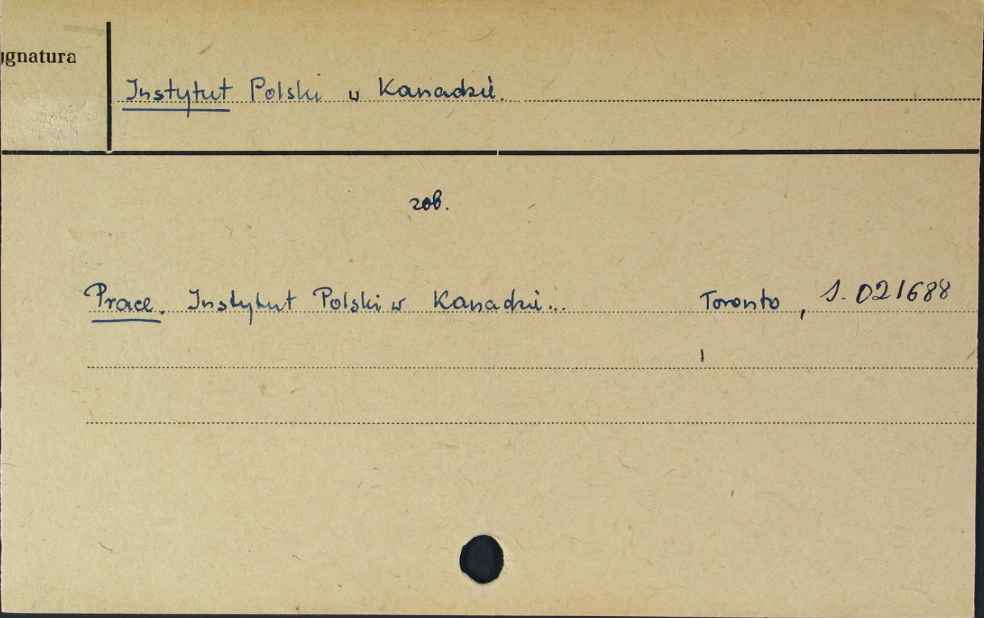 ygnatura
Instytut Polski w Kanadzie.
zob.
Prace. Instytut Polski w Kanadzie... Toronto, S. 021688